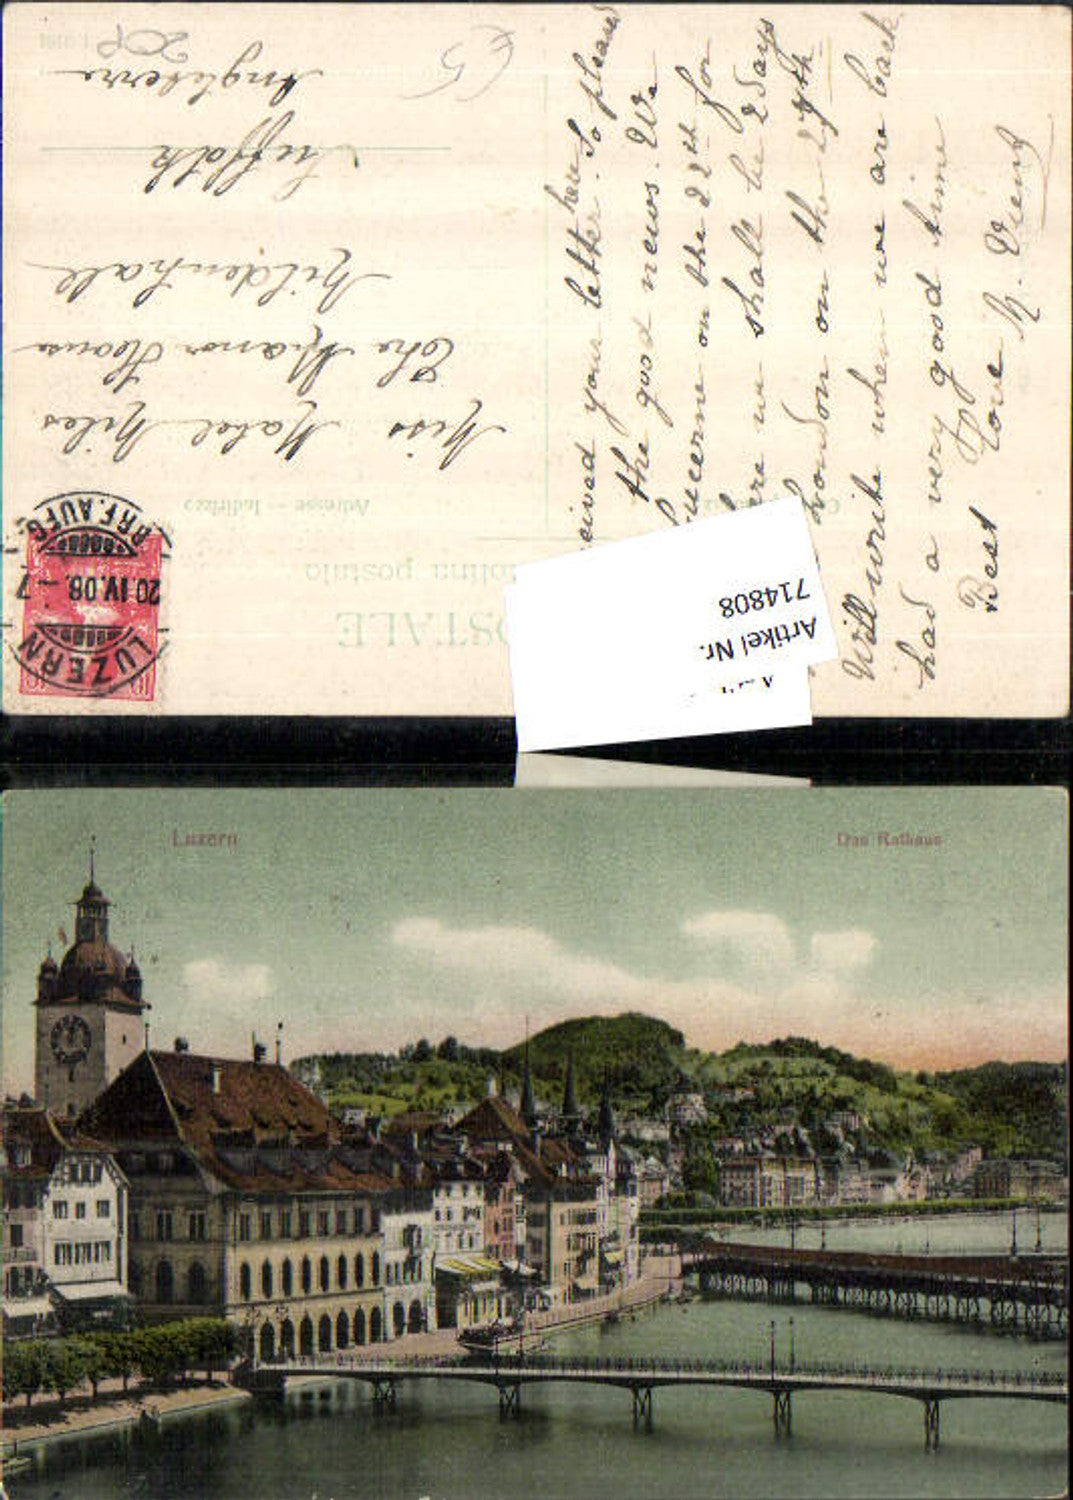 1 9191
20P
€5
OSTALE
tolina postale
Adresse — Indirizzo
Miss Mabel Niles
The Manor House
Mildenhall
Suffolk
Angleterre
LUZERN
20.IV.08.–7
BRF.AUFG.
10
10
here
ceived your letter. So pleased
the good news. We
Lucerne on the 22th for
ere we shall be 2 days
London on the 27th
Will write when we are back
had a very good time
Best love M.
Artikel Nr.
714808
Luzern
Das Rathaus